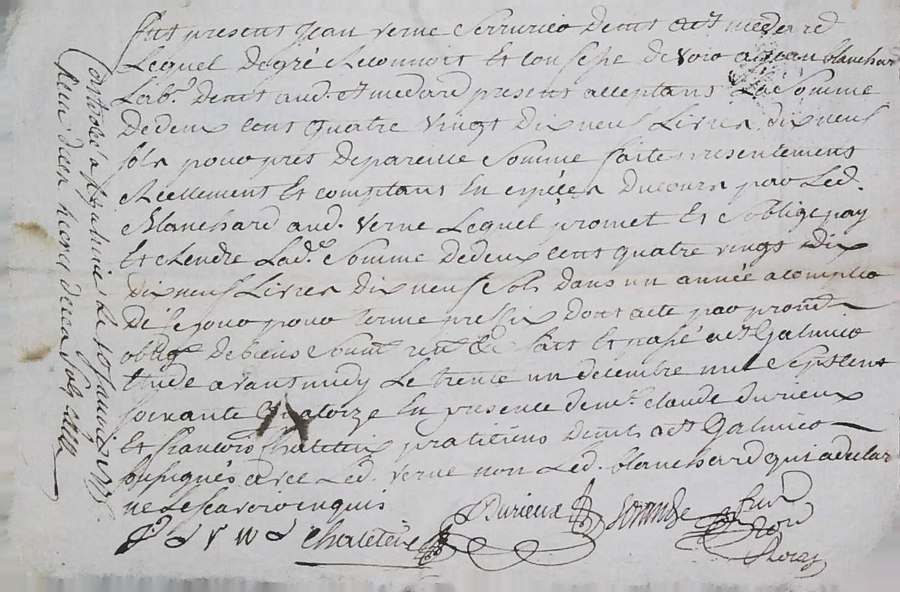 Fut present Jean Verne Serrurier demt a St medard
Lequel de gré Reconnoit Et Confesse devoir a Jean blanchar
Labr. demt aud. St medard present acceptant La Somme
De deux Cent quatre vingt dix neuf Livres dix neuf
sols pour pret de pareille Somme faite presentement
Reellement Et comptant En espéces du cours par Led.
Blanchard aud. Verne Lequel promet Et Soblige pay
Et Rendre Lad. Somme de deux Cent quatre vingt dix
Dix neuf Livres Dix neuf Sols dans un année a complir
De Ce jour pour terme prefix Dont acte par prom.
oblig. de biens Soum. ren. &c fait Et passé a St Galmier
Etude avant midy Le trente un decembre mil Sept Cent
soixante quatorze En presence de me. Claude Durieux
Et francois Chateteix praticiens demt a St Galmier
Sousignés avec Led. Verne non Led. blanchard qui a declar
ne Le Scavoir enquis
Durieux
Chateteix
Controlé a St Galmier Le
Recu